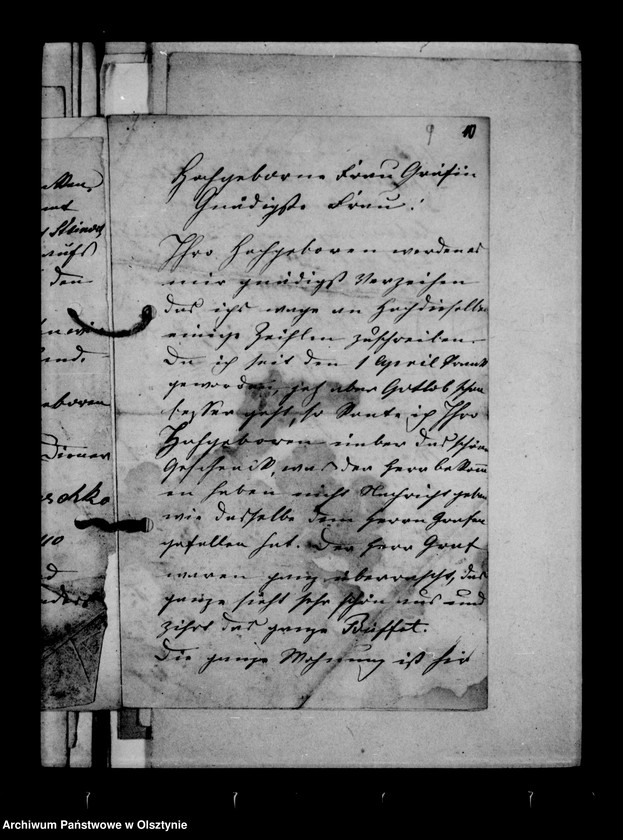 9 10
Hochgeborne Frau Gräfin
Gnädigste Frau!
Ihro Hochgeboren werden es
mir gnädigst Verzeihen
das ichs wage an Hochdieselbe
einige Zeihlen zuschreiben.
Da ich seit den 1 April Krank
geworden, jetz aber Gottlob schon
besser geht, so konte ich Ihro
Hochgeboren über das schöne
Geschenck, was der Herr bekom
en haben nicht Nachricht geben
wie dasselbe dem Herrn Grafen
gefallen hat. Der Herr Graf
waren ganz überrascht, das
ganze sieht sehr schön aus und
ziert das ganze Büffet.
Die ganze Wohnung ist hir
den
eboren
Diener
Archiwum Państwowe w Olsztynie